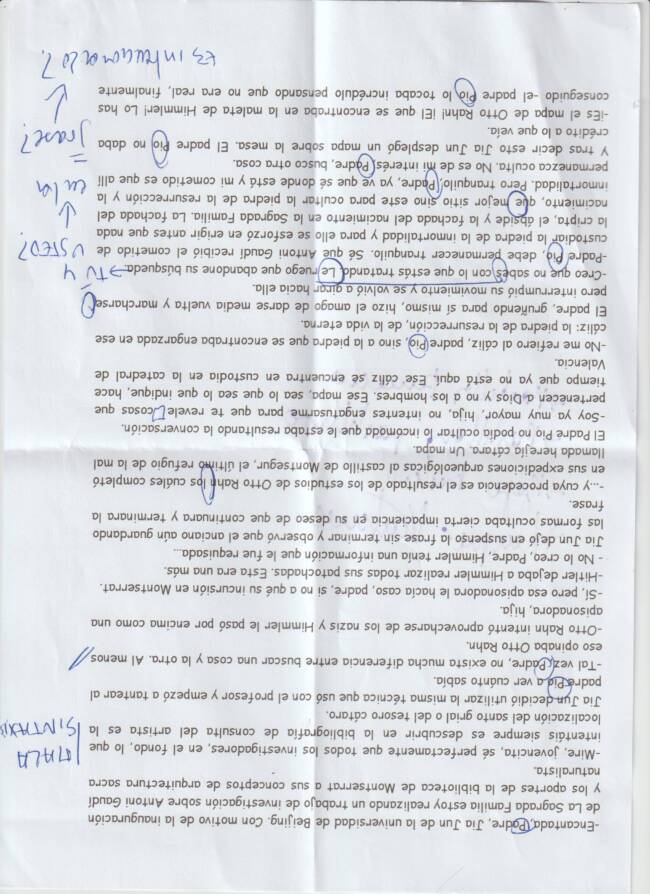 -Encantada, Padre, Jia Jun de la universidad de Beijing. Con motivo de la inauguración
de La Sagrada Familia estoy realizando un trabajo de investigación sobre Antoni Gaudí
y los aportes de la biblioteca de Montserrat a sus conceptos de arquitectura sacra
naturalista.
-Mire, jovencita, sé perfectamente que todos los investigadores, en el fondo, lo que
intentáis siempre es descubrir en la bibliografía de consulta del artista es la
localización del santo grial o del tesoro cátaro.
MALA
SINTAXIS
Jia Jun decidió utilizar la misma técnica que usó con el profesor y empezó a tantear al
padre Pio a ver cuánto sabía.
-Tal vez, Padre, no exista mucha diferencia entre buscar una cosa y la otra. Al menos
eso opinaba Otto Rahn.
-Otto Rahn intentó aprovecharse de los nazis y Himmler le pasó por encima como una
apisonadora, hija.
-Sí, pero esa apisonadora le hacía caso, padre, si no a qué su incursión en Montserrat.
-Hitler dejaba a Himmler realizar todas sus patochadas. Esta era una más.
- No lo creo, Padre, Himmler tenía una información que le fue requisada...
Jia Jun dejó en suspenso la frase sin terminar y observó que el anciano aún guardando
las formas ocultaba cierta impaciencia en su deseo de que continuara y terminara la
frase.
-...y cuya procedencia es el resultado de los estudios de Otto Rahn los cuáles completó
en sus expediciones arqueológicas al castillo de Montsegur, el último refugio de la mal
llamada herejía cátara. Un mapa.
El Padre Pio no podía ocultar lo incómoda que le estaba resultando la conversación.
-Soy ya muy mayor, hija, no intentes engatusarme para que te revele cosas que
pertenecen a Dios y no a los hombres. Ese mapa, sea lo que sea lo que indique, hace
tiempo que ya no está aquí. Ese cáliz se encuentra en custodia en la catedral de
Valencia.
-No me refiero al cáliz, padre Pio, sino a la piedra que se encontraba engarzada en ese
cáliz: la piedra de la resurrección, de la vida eterna.
El padre, gruñendo para sí mismo, hizo el amago de darse media vuelta y marcharse
pero interrumpió su movimiento y se volvió a girar hacia ella.
-Creo que no sabes con lo que estás tratando. Le ruego que abandone su búsqueda.
→TÚ Y
USTED?
-Padre Pio, debe permanecer tranquilo. Sé que Antoni Gaudí recibió el cometido de
custodiar la piedra de la inmortalidad y para ello se esforzó en erigir antes que nada
la cripta, el ábside y la fachada del nacimiento en la Sagrada Familia. La fachada del
nacimiento, que mejor sitio sino este para ocultar la piedra de la resurrección y la
inmortalidad. Pero tranquilo, Padre, ya ve que sé donde está y mi cometido es que allí
permanezca oculta. No es de mi interés, Padre, busco otra cosa.
en la
= frase?
Y tras decir esto Jia Jun desplegó un mapa sobre la mesa. El padre Pio no daba
crédito a lo que veía.
-¡Es el mapa de Otto Rahn! ¡El que se encontraba en la maleta de Himmler! Lo has
conseguido -el padre Pio lo tocaba incrédulo pensando que no era real, finalmente